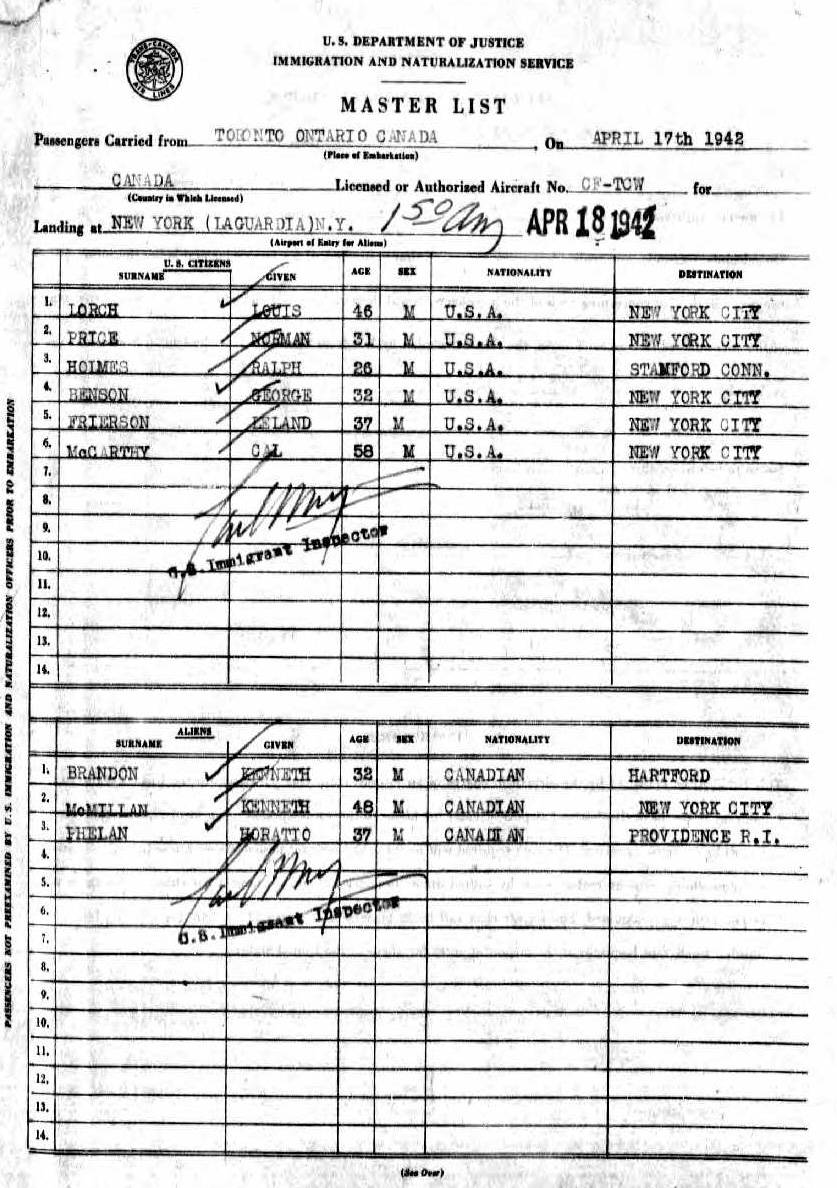 TRANS-CANADA
AIR LINES
U. S. DEPARTMENT OF JUSTICE
IMMIGRATION AND NATURALIZATION SERVICE
MASTER LIST
Passengers Carried from TORONTO ONTARIO CANADA, On APRIL 17th 1942
(Place of Embarkation)
CANADA Licensed or Authorized Aircraft No. CF-TCW for
(Country in Which Licensed)
Landing at NEW YORK (LAGUARDIA)N.Y. 1 50 am APR 18 1942
(Airport of Entry for Aliens)
U. S. CITIZENS
SURNAME GIVEN AGE SEX NATIONALITY DESTINATION
1. LORCH LOUIS 46 M U.S.A. NEW YORK CITY
2. PRICE NORMAN 31 M U.S.A. NEW YORK CITY
3. HOLMES RALPH 26 M U.S.A. STAMFORD CONN.
4. BENSON GEORGE 32 M U.S.A. NEW YORK CITY
5. FRIERSON LELAND 37 M U.S.A. NEW YORK CITY
6. McCARTHY CAL 58 M U.S.A. NEW YORK CITY
7.
8.
9.
U.S. Immigrant Inspector
10.
11.
12.
13.
14.
ALIENS
SURNAME GIVEN AGE SEX NATIONALITY DESTINATION
1. BRANDON KENNETH 32 M CANADIAN HARTFORD
2. McMILLAN KENNETH 48 M CANADIAN NEW YORK CITY
3. PHELAN HORATIO 37 M CANADIAN PROVIDENCE R.I.
4.
5.
6.
U.S. Immigrant Inspector
7.
8.
9.
10.
11.
12.
13.
14.
(See Over)
PASSENGERS NOT PREEXAMINED BY U. S. IMMIGRATION AND NATURALIZATION OFFICERS PRIOR TO EMBARKATION